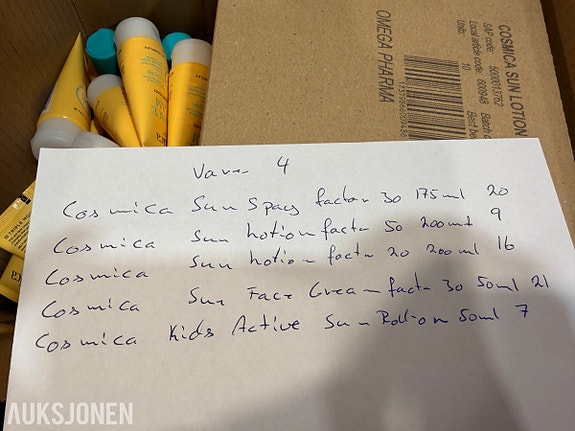 COSMICA SUN LOTION
SAP code: 5000013762
Local article code: 600948
Units: 10
OMEGA PHARMA
Vare 4
Cosmica Sun Spray factor 30 175ml 20
Cosmica Sun Lotion factor 50 200ml 9
Cosmica Sun Lotion factor 20 200ml 16
Cosmica Sun Face Cream factor 30 50ml 21
Cosmica Kids Active Sun Roll-on 50ml 7
AUKSJONEN